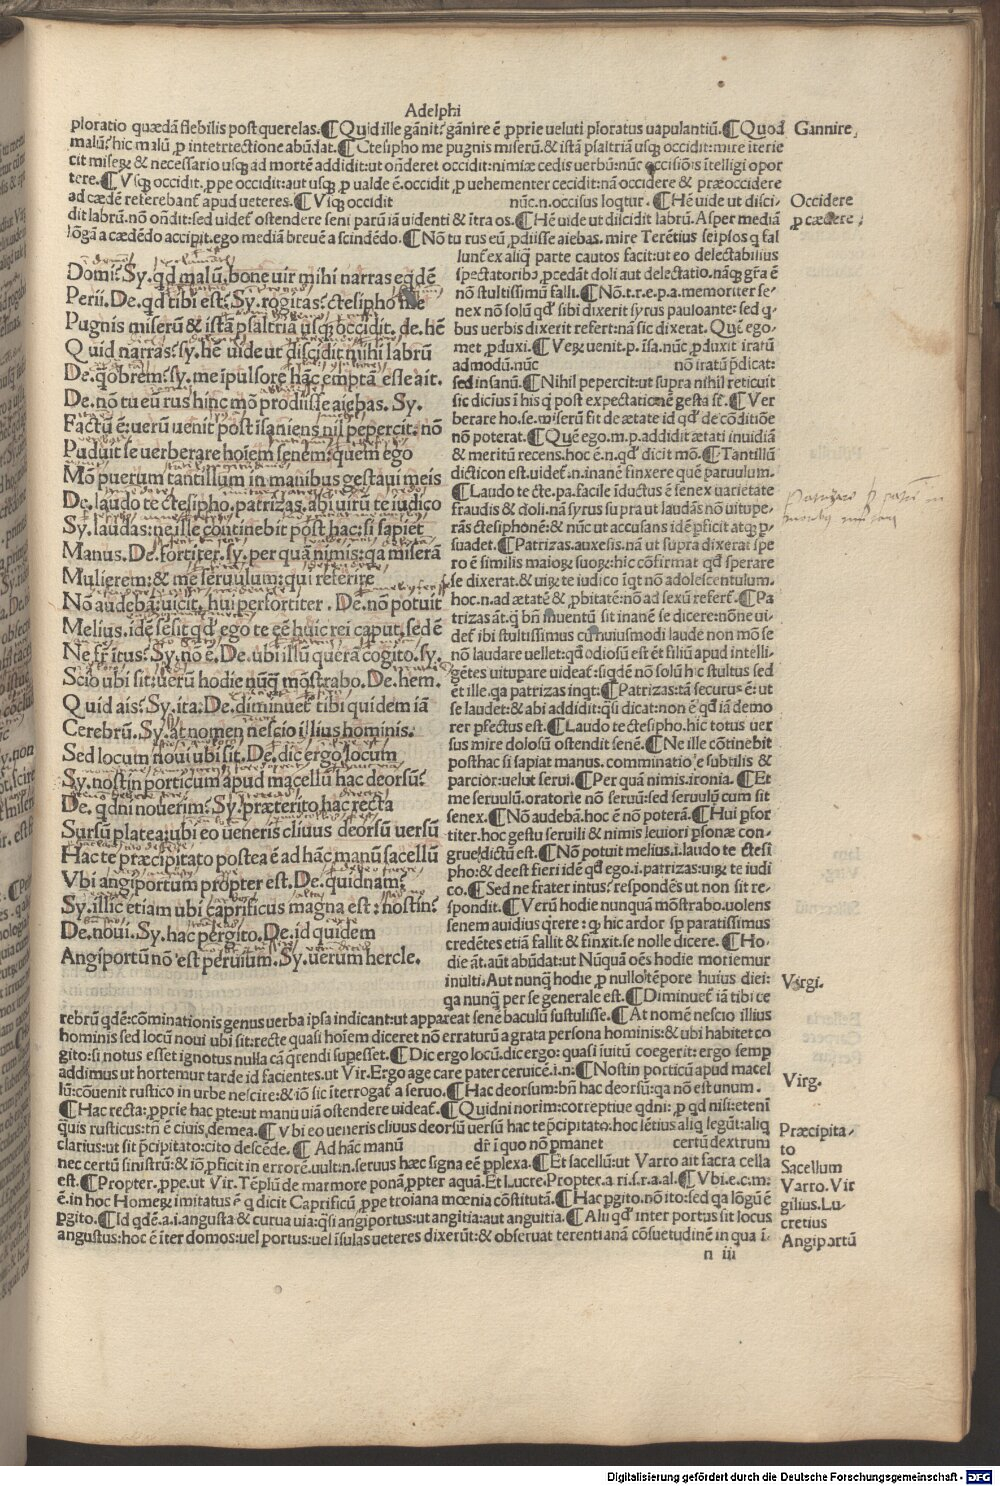 Adelphi
ploratio quædā flebilis post querelas.¶Quid ille gānit?gānire ē ꝓprie ueluti ploratus uapulantiū.¶Quod
malū?hic malū ꝓ interiectione abūdat.¶Ctesipho me pugnis miserū.& istā psaltriā usqꝫ occidit:mire iterie
cit miseꝝ & necessario usqꝫ ad mortē addidit:ut oñderet occidit:nimiæ cedis uerbū:nūc occisiōis ītelligi opor
tere.¶Vsqꝫ occidit.ꝓpe occidit:aut usqꝫ ꝓ ualde ē.occidit ꝓ uehementer cecidit:nā occidere & præoccidere
ad cædē referebant apud ueteres.¶Vsqꝫ occidit nūc.n.occisus loqtur.¶Hē uide ut disci-
dit labrū.nō oñdit:sed uidet ostendere seni parū iā uidenti & ītra os.¶Hē uide ut discidit labrū.Asper mediā
lōgā a cædēdo accipit.ego mediā breuē a scindēdo.¶Nō tu rus eū ꝓdiisse aiebas.mire Terētius seipsos q fal
Gannire,
Occidere
ꝓ cædere,
Domi?Sy.qd malū,bone uir mihi narras eqdē
Perii.De.qd tibi est?Sy.rogitas?ctesipho me
Pugnis miserū & istā psaltriā usqꝫ occidit.de.hē
Quid narras?sy.hē uide ut discidit mihi labrū
De.qobrem?sy.me īpulsore hāc emptā esse ait.
De.nō tu eū rus hinc mō prodiisse aiebas.Sy.
Factū ē:uerū uenit post īsaniens nil pepercit.nō
Puduit se uerberare hoīem senem:quem ego
Mō puerum tantillum in manibus gestaui meis
De.laudo te ctesipho.patrizas,abi uirū te iudico
Sy.laudas:ne ille continebit post hac:si sapiet
Manus.De.fortiter.sy.per quā nimis:qa miserā
Mulierem:& me seruulum:qui referire
Nō audebā:uicit,hui perfortiter.De.nō potuit
Melius.idē sēsit qd ego te eē huic rei caput.sed ē
Ne fr̄ ītus?Sy.nō ē.De.ubi illū querā cogito.sy.
Scio ubi sit:uerū hodie nūq mōstrabo.De.hem.
Quid ais?Sy.ita:De.diminuet tibi quidem iā
Cerebrū.Sy.at nomen nescio illius hominis.
Sed locum noui ubi sit.De.dic ergo locum
Sy.nostin porticum apud macellū hac deorsū?
De.qdni nouerim?Sy.præterito hac recta
Sursū platea:ubi eo ueneris cliuus deorsū uersū
Hac te præcipitato postea ē ad hāc manū sacellū
Vbi angiportum propter est.De.quidnam?
Sy.illic etiam ubi caprificus magna est:nostin?
De.noui.Sy.hac pergito.De.id quidem
Angiportū nō est peruium.Sy.uerum hercle.
lunt ex aliq parte cautos facit:ut eo delectabilius
spectatoribꝫ ꝓcedāt doli aut delectatio.nāqꝫ gr̄a ē
nō stultissimū falli.¶Nō.t.r.e.p.a.memoriter se-
nex nō solū qd sibi dixerit syrus pauloante:sed q-
bus uerbis dixerit refert:nā sic dixerat.Quē ego-
met ꝓduxi.¶Veꝝ uenit.p.īsa.nūc ꝓduxit iratū
admodū.nūc nō iratū p̄dicat:
sed insanū.¶Nihil pepercit:ut supra nihil reticuit
sic dicius ī his q post expectationē gesta st̄.¶Ver
berare ho.se.miserū fit de ætate id qd de cōditiōe
nō poterat.¶Quē ego.m.p.addidit ætati inuidiā
& meritū recens.hoc ē.n.qd dicit mō.¶Tantillū
dicticon est.uidet.n.inanē finxere quē paruulum.
¶Laudo te cte.pa.facile īductus ē senex uarietate
fraudis & doli.nā syrus supra ut laudās nō uitupe-
rās ctesiphonē:& nūc ut accusans idē pficit atqꝫ ꝑ-
suadet.¶Patrizas.auxesis.nā ut supra dixerat spe
ro ē similis maioꝝ suoꝝ:hic cōfirmat qd sperare
se dixerat.& uiꝝ te iudico īqt nō adolescentulum.
hoc.n.ad ætatē & ꝓbitatē:nō ad sexū refert.¶Pa
trizas āt.q bñ inuentū sit inanē se dicere:nōne ui-
det ibi stultissimus cū huiusmodi laude non mō se
nō laudare uellet:qd odiosū est ēt filiū apud intelli-
gētes uitupare uideat:siqdē nō solū hic stultus sed
ēt ille.qa patrizas inqt:¶Patrizas:tā securus ē:ut
se laudet:& abi addidit:qsi dicat:non ē qd iā demo
rer ꝑfectus est.¶Laudo te ctesipho.hic totus uer
sus mire dolosū ostendit senē.¶Ne ille cōtinebit
posthac si sapiat manus.comminatio ē subtilis &
parcior:uelut serui.¶Per quā nimis.ironia.¶Et
me seruulū.oratorie nō seruū:sed seruulū cum sit
senex.¶Nō audebā.hoc ē nō poterā.¶Hui ꝑfor
titer.hoc gestu seruili & nimis leuiori ꝑsonæ con-
grue dictū est.¶Nō potuit melius.i.laudo te ctesi
pho:& deest fieri idē qd ego.i.patrizas:uiꝝ te iudi
co.¶Sed ne frater intus?respondēs ut non sit re-
spondit.¶Verū hodie nunquā mōstrabo.uolens
senem auidius qrere:qꝫ hic ardor sp̄ paratissimus
credētes etiā fallit & finxit.se nolle dicere.¶Ho-
die āt.aūt abūdat:ut Nūquā oēs hodie moriemur
inulti.Aut nunq hodie ꝓ nullo tēpore huius diei:
qa nunq per se generale est.¶Diminuet iā tibi ce
Virgi.
rebrū qdē:cōminationis genus uerba ipsa indicant:ut appareat senē baculū sustulisse.¶At nomē nescio illius
hominis sed locū noui ubi sit:recte quasi hoīem diceret nō erraturū a grata persona hominis:& ubi habitet co
gito:si notus esset ignotus nulla cā qrendi supesset.¶Dic ergo locū.dic ergo:quasi iuitū coegerit:ergo semp
addimus ut hortemur tarde id facientes.ut Vir.Ergo age care pater ceruicē.i.n:¶Nostin porticū apud macel
lū:cōuenit rustico in urbe nescire:& iō sic īterrogat a seruo.¶Hac deorsum:bñ hac deorsū:qa nō est unum.
¶Hac recta:ꝓprie hac ꝑte:ut manu uiā ostendere uideat.¶Quidni norim:correptiue qdni:ꝓ qd nisi:etenī
quis rusticus:tñ ē ciuis demea.¶Vbi eo ueneris cliuus deorsū uersū hac te p̄cipitato:hoc lētius aliq legūt:aliq
clarius:ut sit p̄cipitato:cito descēde.¶Ad hāc manū dr̄ ī quo nō ꝑmanet certū dextrum
nec certū sinistrū:& iō ꝓficit in errorē.uult.n.seruus hæc signa eē ꝑplexa.¶Et sacellū:ut Varro ait sacra cella
est.¶Propter.ꝓpe.ut Vir.Tēplū de marmore ponā ꝓpter aquā.Et Lucre.Propter.a ri.s.r.a.al.¶Vbi.e.c.m:
ē.in hoc Homeꝝ imitatus ē q dicit Caprificū ꝓpe troiana mœnia cōstitutā.¶Hac ꝑgito.nō ito:sed qa lōgū ē
ꝑgito.¶Id qdē.a.i.angusta & curua uia:qsi angiportus:ut angitia:aut anguitia.¶Alii qd inter portus sit locus
angustus:hoc ē iter domos:uel portus:uel īsulas ueteres dixerūt:& obseruat terentianā cōsuetudinē in qua ī-
Virg.
Præcipita-
to
Sacellum
Varro.Vir
gilius.Lu-
cretius
Angiportū
n iii
Digitalisierung gefördert durch die Deutsche Forschungsgemeinschaft - DFG